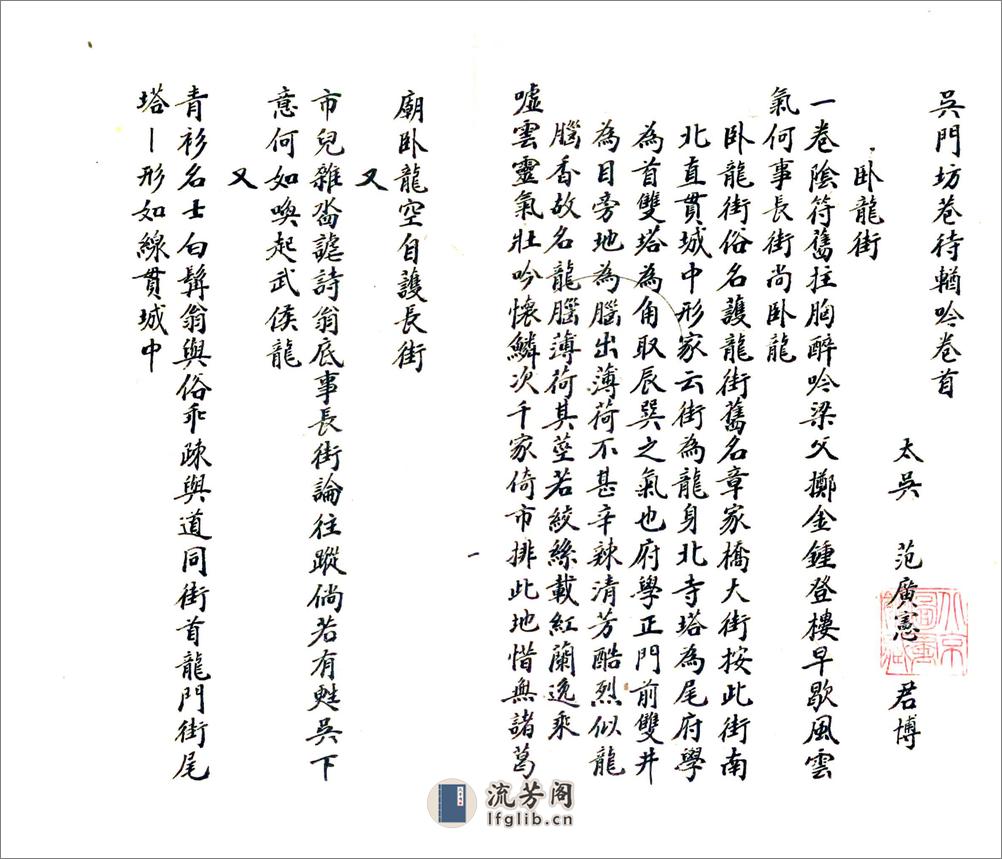 吳門坊巷待輶吟卷首
太吳 范廣憲 君博
卧龍街
一卷陰符舊拄胸醉吟梁父擲金鍾登樓早歇風雲
氣何事長街尚卧龍
卧龍街俗名護龍街舊名章家橋大街按此街南
北直貫城中形家云街為龍身北寺塔為尾府學
為首雙塔為角取辰巽之氣也府學正門前雙井
為目旁地為腦出薄荷不甚辛辣清芳酷烈似龍
腦香故名龍腦薄荷其莖若絞絲載紅蘭逸乘
噓雲靈氣壯吟懷鱗次千家倚市排此地惜無諸葛
廟卧龍空自護長街
又
市兒雜遝謔詩翁底事長街論往蹤倘若有甦吳下
意何如喚起武侯龍
又
青衫名士白髯翁與俗乖疎與道同街首龍門街尾
塔丨形如線貫城中
北京圖書館藏
流芳阁
lfglib.cn